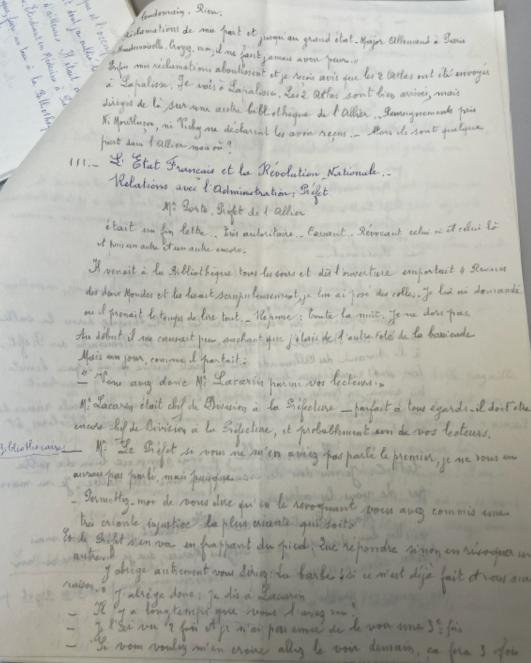 lendemain. Rien.
réclamations de ma part et jusqu'au grand état-Major Allemand à Paris
Mademoiselle, croyez-moi, il ne faut jamais avoir peur..
Enfin mes réclamations aboutissent et je reçois avis que les 2 Atlas ont été envoyés
à Lapalisse. Je vais à Lapalisse. Les 2 Atlas sont bien arrivés, mais
dirigés de là sur une autre bibliothèque de l'Allier.. Renseignements pris
Ni Montluçon, ni Vichy ne déclarent les avoir reçus. - Alors ils sont quelque
part dans l'Allier mais où ?
III.- L'Etat Français et la Révolution Nationale..
Relations avec l'Administration, Préfet
Mr Porte, Préfet de l'Allier
était un fin lettré.. Très autoritaire.. Cassant.. Révoquant celui-ci et celui-là
et puis un autre et un autre encore.
Il venait à la Bibliothèque tous les soirs et dès l'ouverture emportait 4 Revues
des deux Mondes et les lisait scrupuleusement, je lui ai posé des colles. Je lui ai demandé
où il prenait le temps de lire tout. - Réponse : toute la nuit. Je ne dors pas.
Au début il me causait peu sachant que j'étais de l'autre côté de la barricade
Mais un jour, comme il partait :
- "Vous avez donc Mr Lacarin parmi vos lecteurs."
Mr Lacarin était chef de Division à la Préfecture - parfait à tous égards - il doit être
encore chef de Division à la Préfecture, et probablement un de vos lecteurs.
Bibliothécaire - Mr Le Préfet si vous ne m'en aviez pas parlé le premier, je ne vous en
aurais pas parlé, mais puisque
- Permettez-moi de vous dire qu'en le révoquant vous avez commis une
très criante injustice la plus criante qui soit"
Et le Préfet s'en va en frappant du pied : Que répondre sinon en révoquer un
autre.."
J'abrège autrement vous diriez : la barbe ! si ce n'est déjà fait et vous auriez
raison." J'abrège donc : Je dis à Lacarin
- Il y a longtemps que vous l'avez vu"
- Je l'ai vu 2 fois et je n'ai pas envie de le voir une 3e fois
- Si vous voulez m'en croire allez le voir demain, ça fera 3 fois